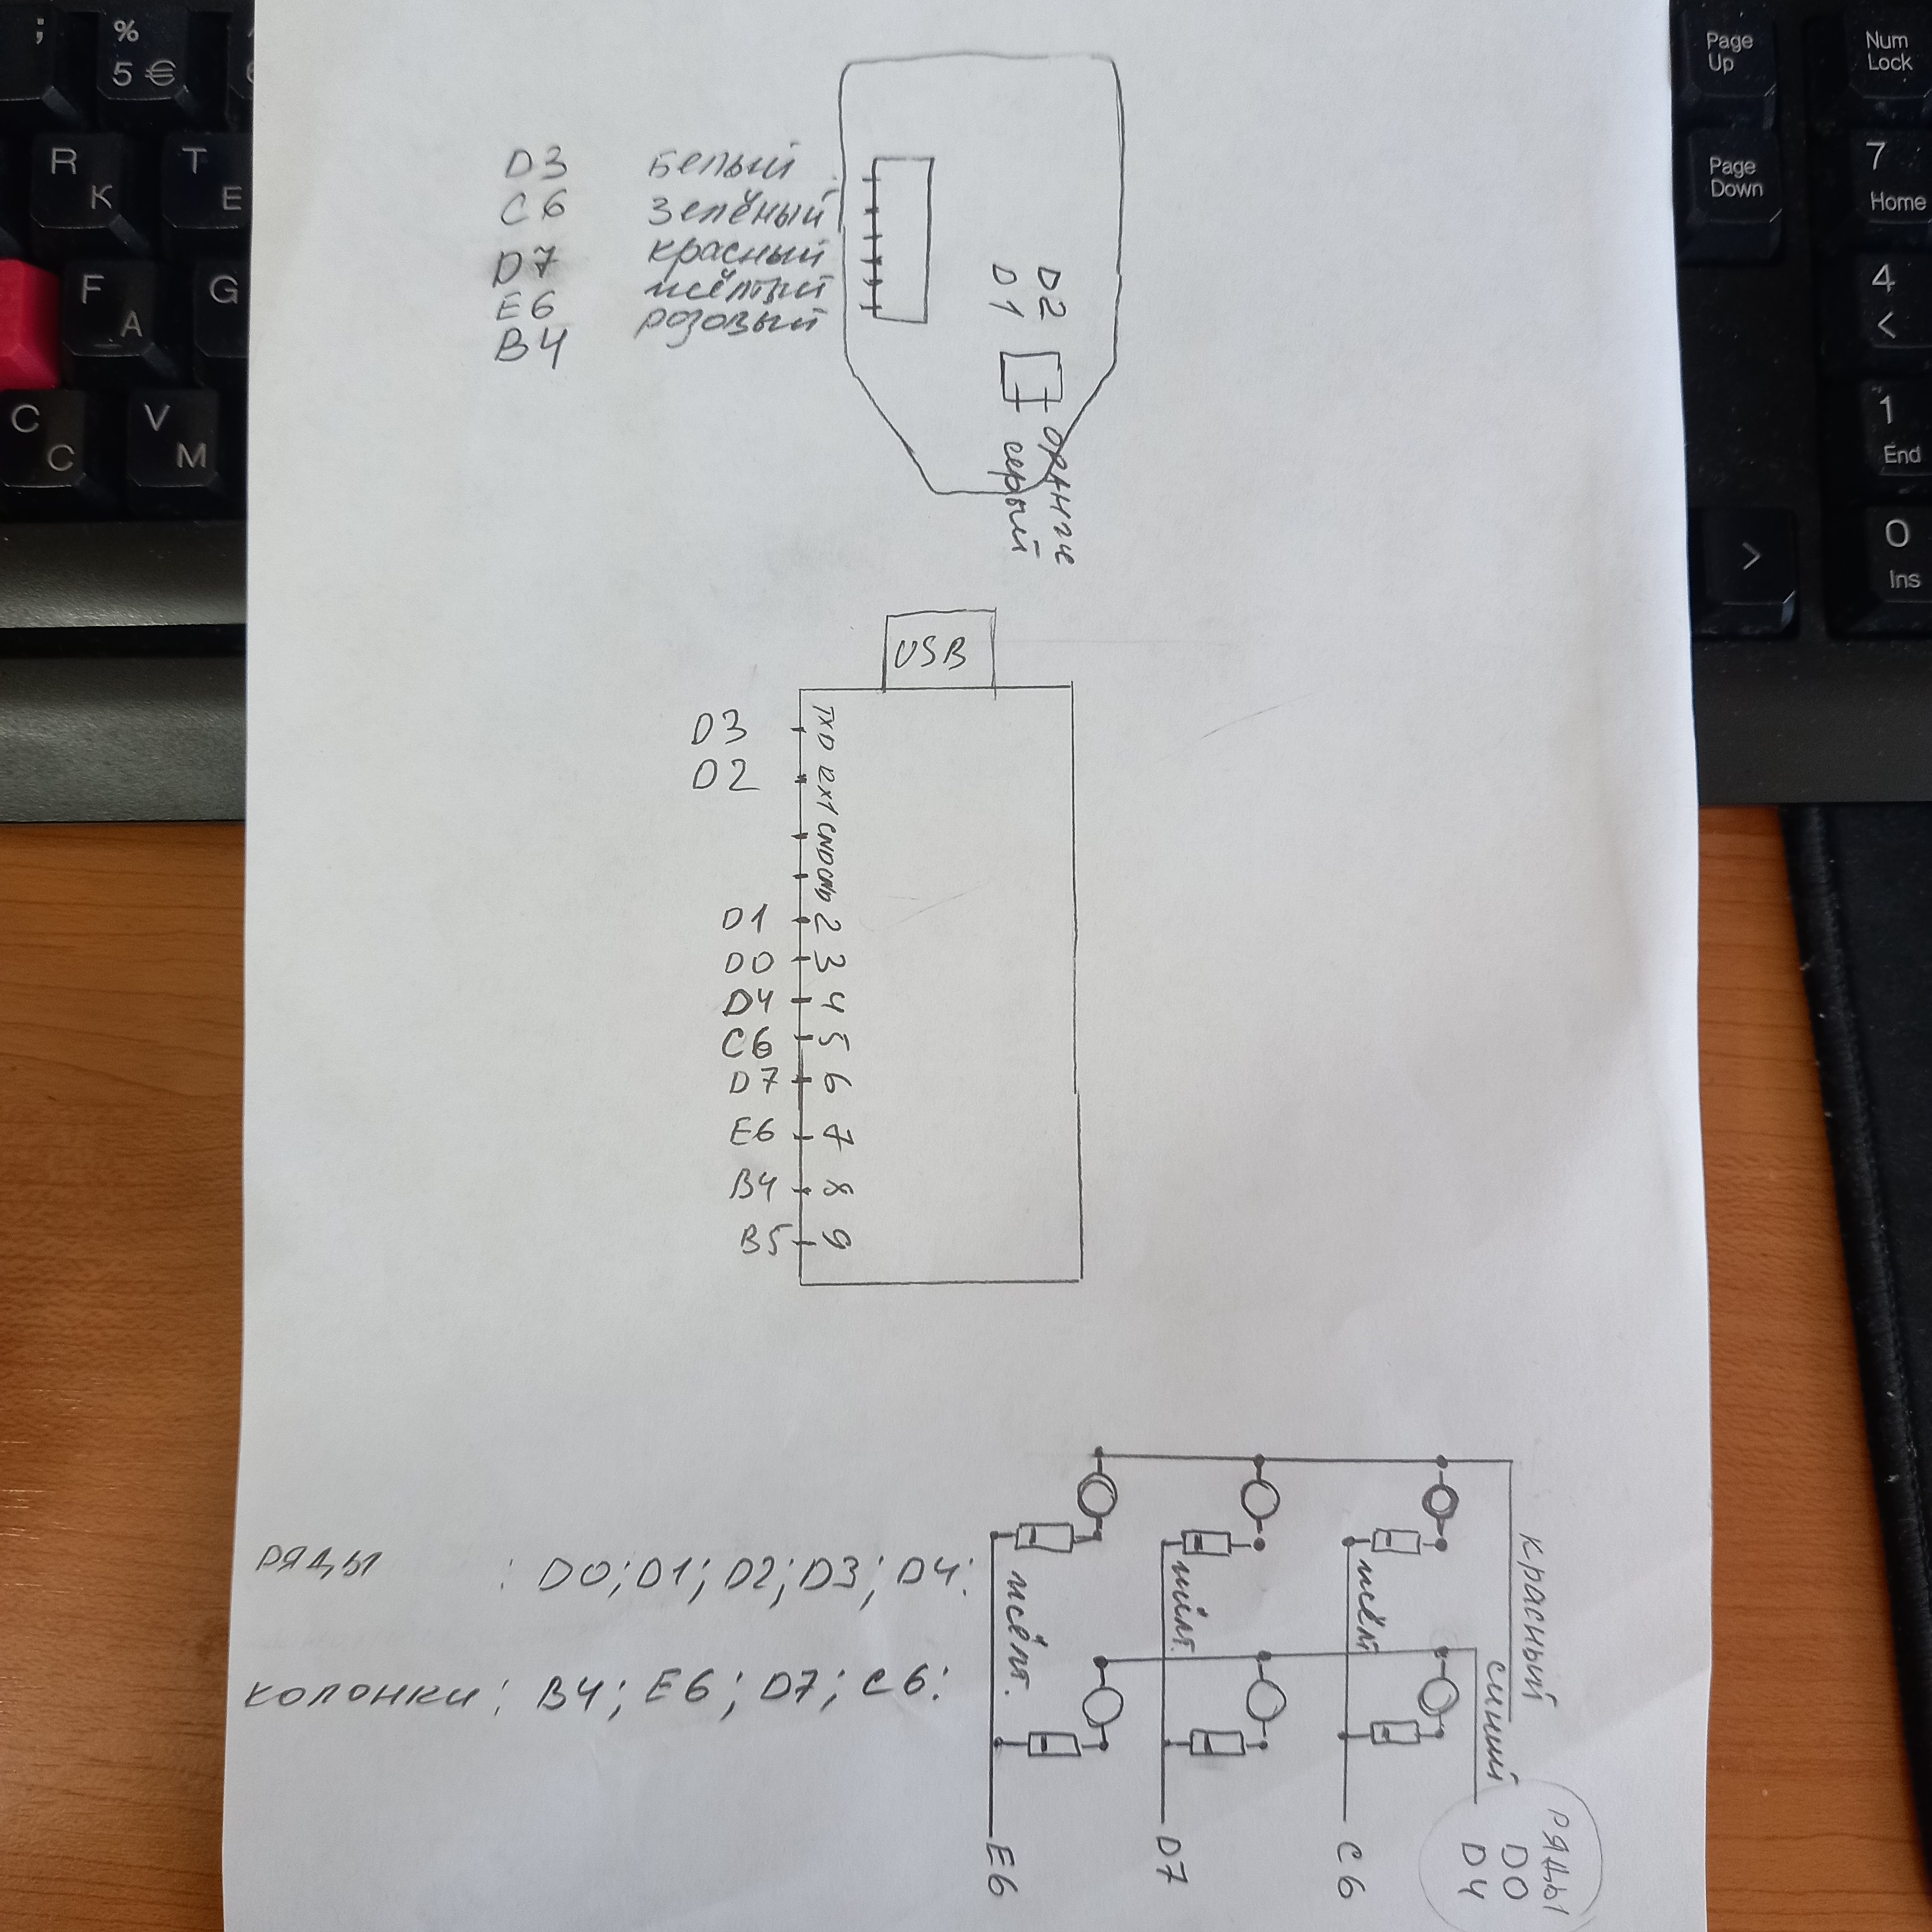 ; % 5 €
R K
T E
F A
G
C C
V M
Page Up
Num Lock
Page Down
7 Home
4 <
1 End
>
0 Ins
D3 Белый
C6 Зелёный
D7 красный
E6 жёлтый
B4 розовый
D2
D1
оранге
серый
USB
D3 TXD
D2
GND
D1 2
D0 3
D4 4
C6 5
D7 6
E6 7
B4 8
B5 9
ряды : D0; D1; D2; D3; D4:
колонки: B4; E6; D7; C6:
красный
синий
жёлт.
жёлт.
жёлт
ряды
D0
D4
C6
D7
E6